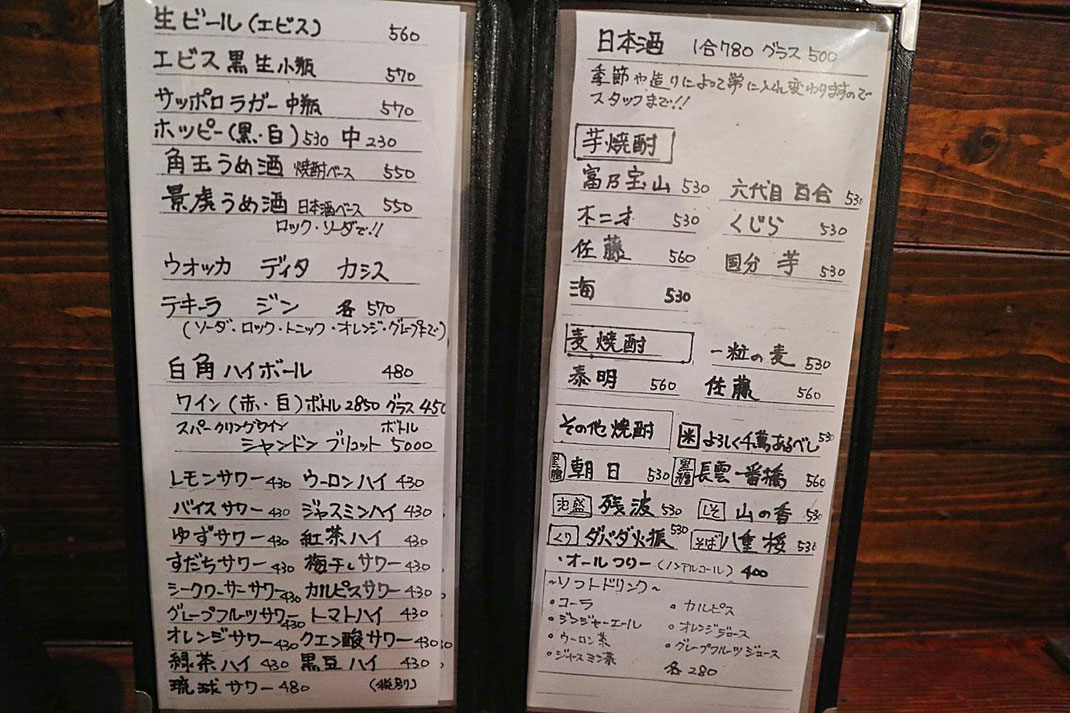 生ビール(エビス) 560
エビス 黒生小瓶 570
サッポロラガー中瓶 570
ホッピー(黒・白)530 中230
角玉うめ酒 焼酎ベース 550
景虎うめ酒 日本酒ベース 550
ロック・ソーダで!!
ウオッカ ディタ カシス
テキーラ ジン 各570
(ソーダ・ロック・トニック・オレンジ・グレープまで)
白角ハイボール 480
ワイン(赤・白)ボトル2850 グラス450
スパークリングワイン ボトル
シャンドン ブリュット 5000
レモンサワー 430 ウーロンハイ 430
バイスサワー 430 ジャスミンハイ 430
ゆずサワー 430 紅茶ハイ 430
すだちサワー 430 梅干しサワー 430
シークワーサーサワー 430 カルピスサワー 430
グレープフルツサワー 430 トマトハイ 430
オレンジサワー 430 クエン酸サワー 430
緑茶ハイ 430 黒豆ハイ 430
琉球サワー 480 (税別)
日本酒 1合780 グラス500
季節や造りによって常に入れ変わりますので
スタッフまで!!
芋焼酎
富乃宝山 530 六代目百合 530
木二才 530 くじら 530
佐藤 560 国分 芋 530
海 530
麦焼酎 一粒の麦 530
泰明 560 佐藤 560
その他焼酎 米 よろしく千萬あるべし 530
黒糖 朝日 530 黒糖 長雲一番橋 560
泡盛 残波 530 しそ 山の香 530
くり ダバダ火振 530 そば 八重桜 530
・オールフリー(ノンアルコール) 400
~ソフトドリンク~
・コーラ ・カルピス
・ジンジャーエール ・オレンジジュース
・ウーロン茶 ・グレープフルーツジュース
・ジャスミン茶 各280